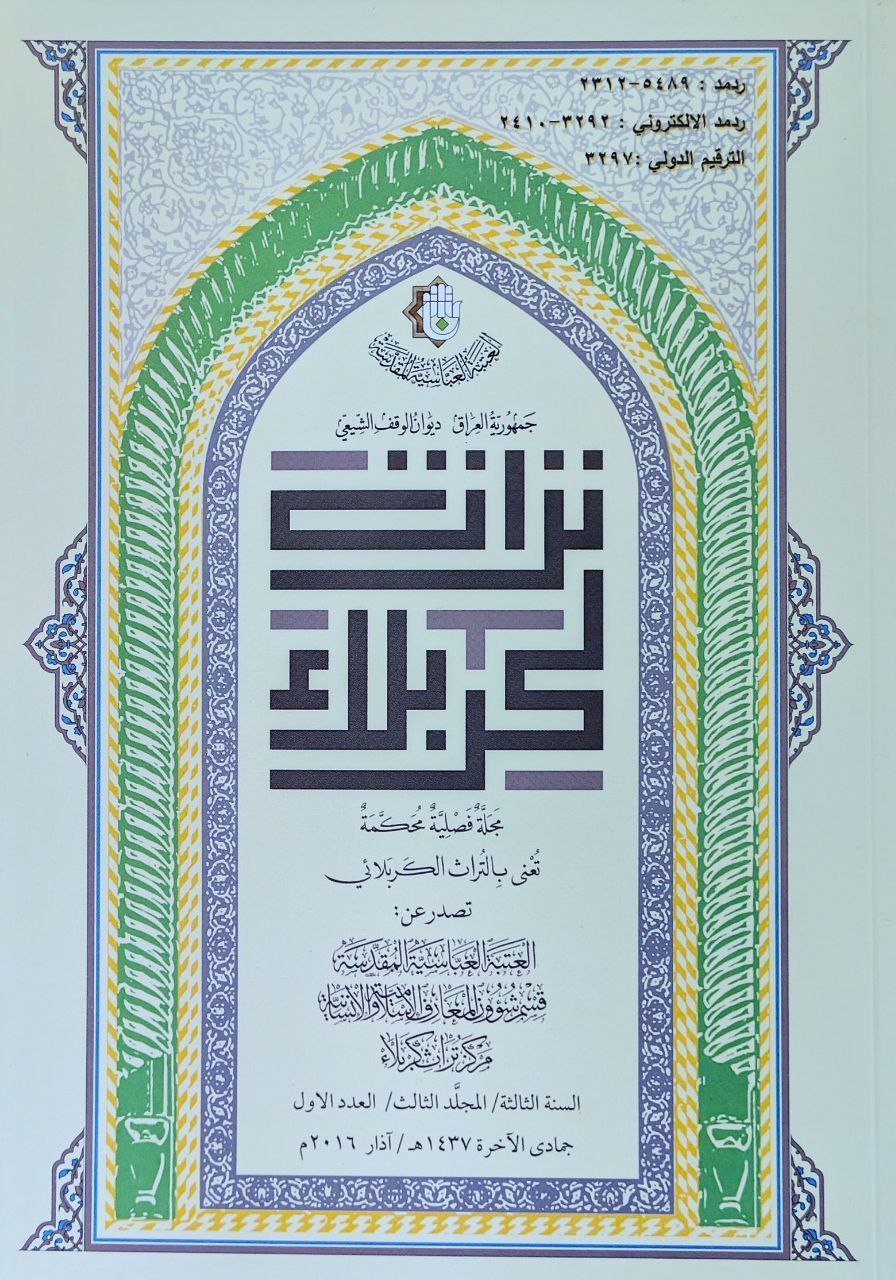 ردمد : ٥٤٨٩-٢٣١٢
ردمد الالكتروني : ٣٢٩٢-٢٤١٠
الترقيم الدولي :٣٢٩٧
العتبة العباسية المقدسة
جَمهُوريّةُ العِراق ديوَانُ الوَقفِ الشِّيعيّ
تراث
كربلاء
مَجَلَّةٌ فَصْلِيَّةٌ مُحَكَّمَةٌ
تُعْنى بِالتُّراث الكَربَلائي
تصدر عن:
العَتبَةُ العَبّاسِيَّةُ المُقَدَّسَةُ
قِسْمُ شُؤُونِ المَعَارِفِ الإِسْلَامِيَّةِ وَالإِنْسَانِيَّةِ
مَركَزُ تُرَاثِ كَربَلَاء
السنة الثالثة/ المجلَّد الثالث/ العدد الاول
جمادى الآخرة ١٤٣٧هـ/ آذار ٢٠١٦م